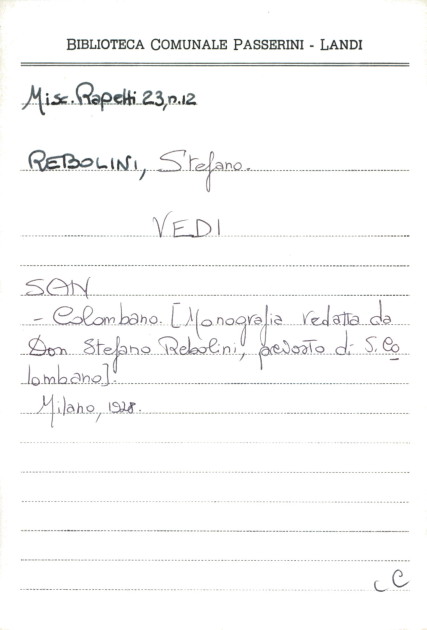 BIBLIOTECA COMUNALE PASSERINI - LANDI
Misc. Rapetti 23, n.12
REBOLINI, Stefano.
VEDI
SAN
- Colombano. [Monografia redatta da
Don Stefano Rebolini, prevosto di S. Co
lombano].
Milano, 1928.
cC